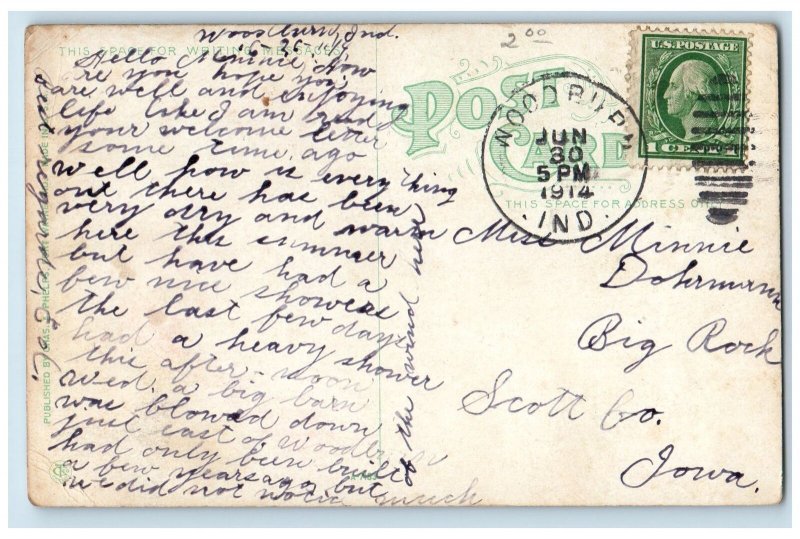 Woodburn, Ind.
THIS SPACE FOR WRITING MESSAGES
Hello Minnie How
re you hope you
are well and enjoying
life like I am read
your welcome letter
some time ago
well how is everything
out there has been
very dry and warm
here this summer
but have had a
few nice showers
the last few days
had a heavy shower
this after-noon
Wed. a big barn
was blowed down
just east of Woodburn
had only been built
a few years ago but
we did not notice much
of the wind here
PUBLISHED BY
2 00
POST CARD
THIS SPACE FOR ADDRESS ONLY
WOODBURN
JUN
30
5 PM
1914
IND.
U.S. POSTAGE
1 CENT 1
Miss Minnie
Dohrmann
Big Rock
Scott Co.
Iowa.